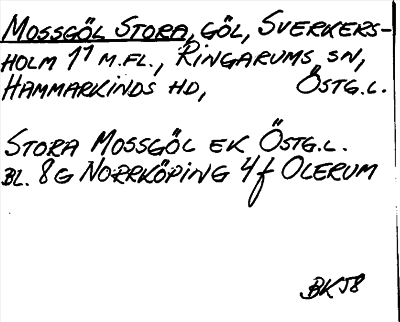 MOSSGÖL STORA, GÖL, SVERKERS-
HOLM 1¹ M.FL., RINGARUMS SN,
HAMMARKINDS HD, ÖSTG.L.
STORA MOSSGÖL EK ÖSTG.L.
BL. 8G NORRKÖPING 4f OLERUM
BKJ8